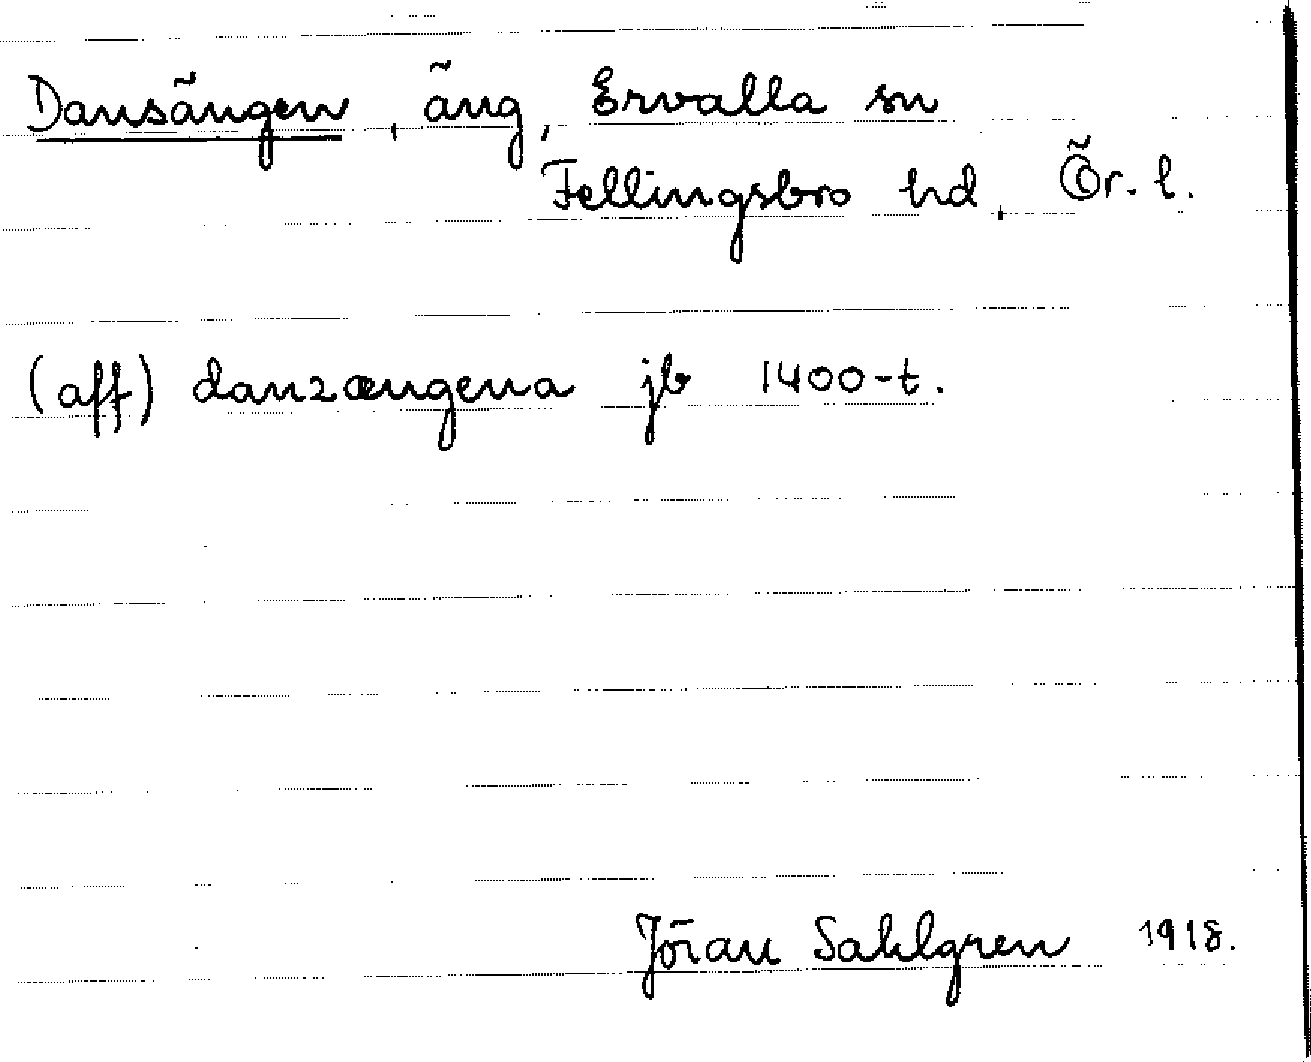 Dansängen, äng, Ervalla sn
Fellingsbro hd, Ör. l.
(aff) danzængena jb 1400-t.
Jöran Sahlgren 1918.